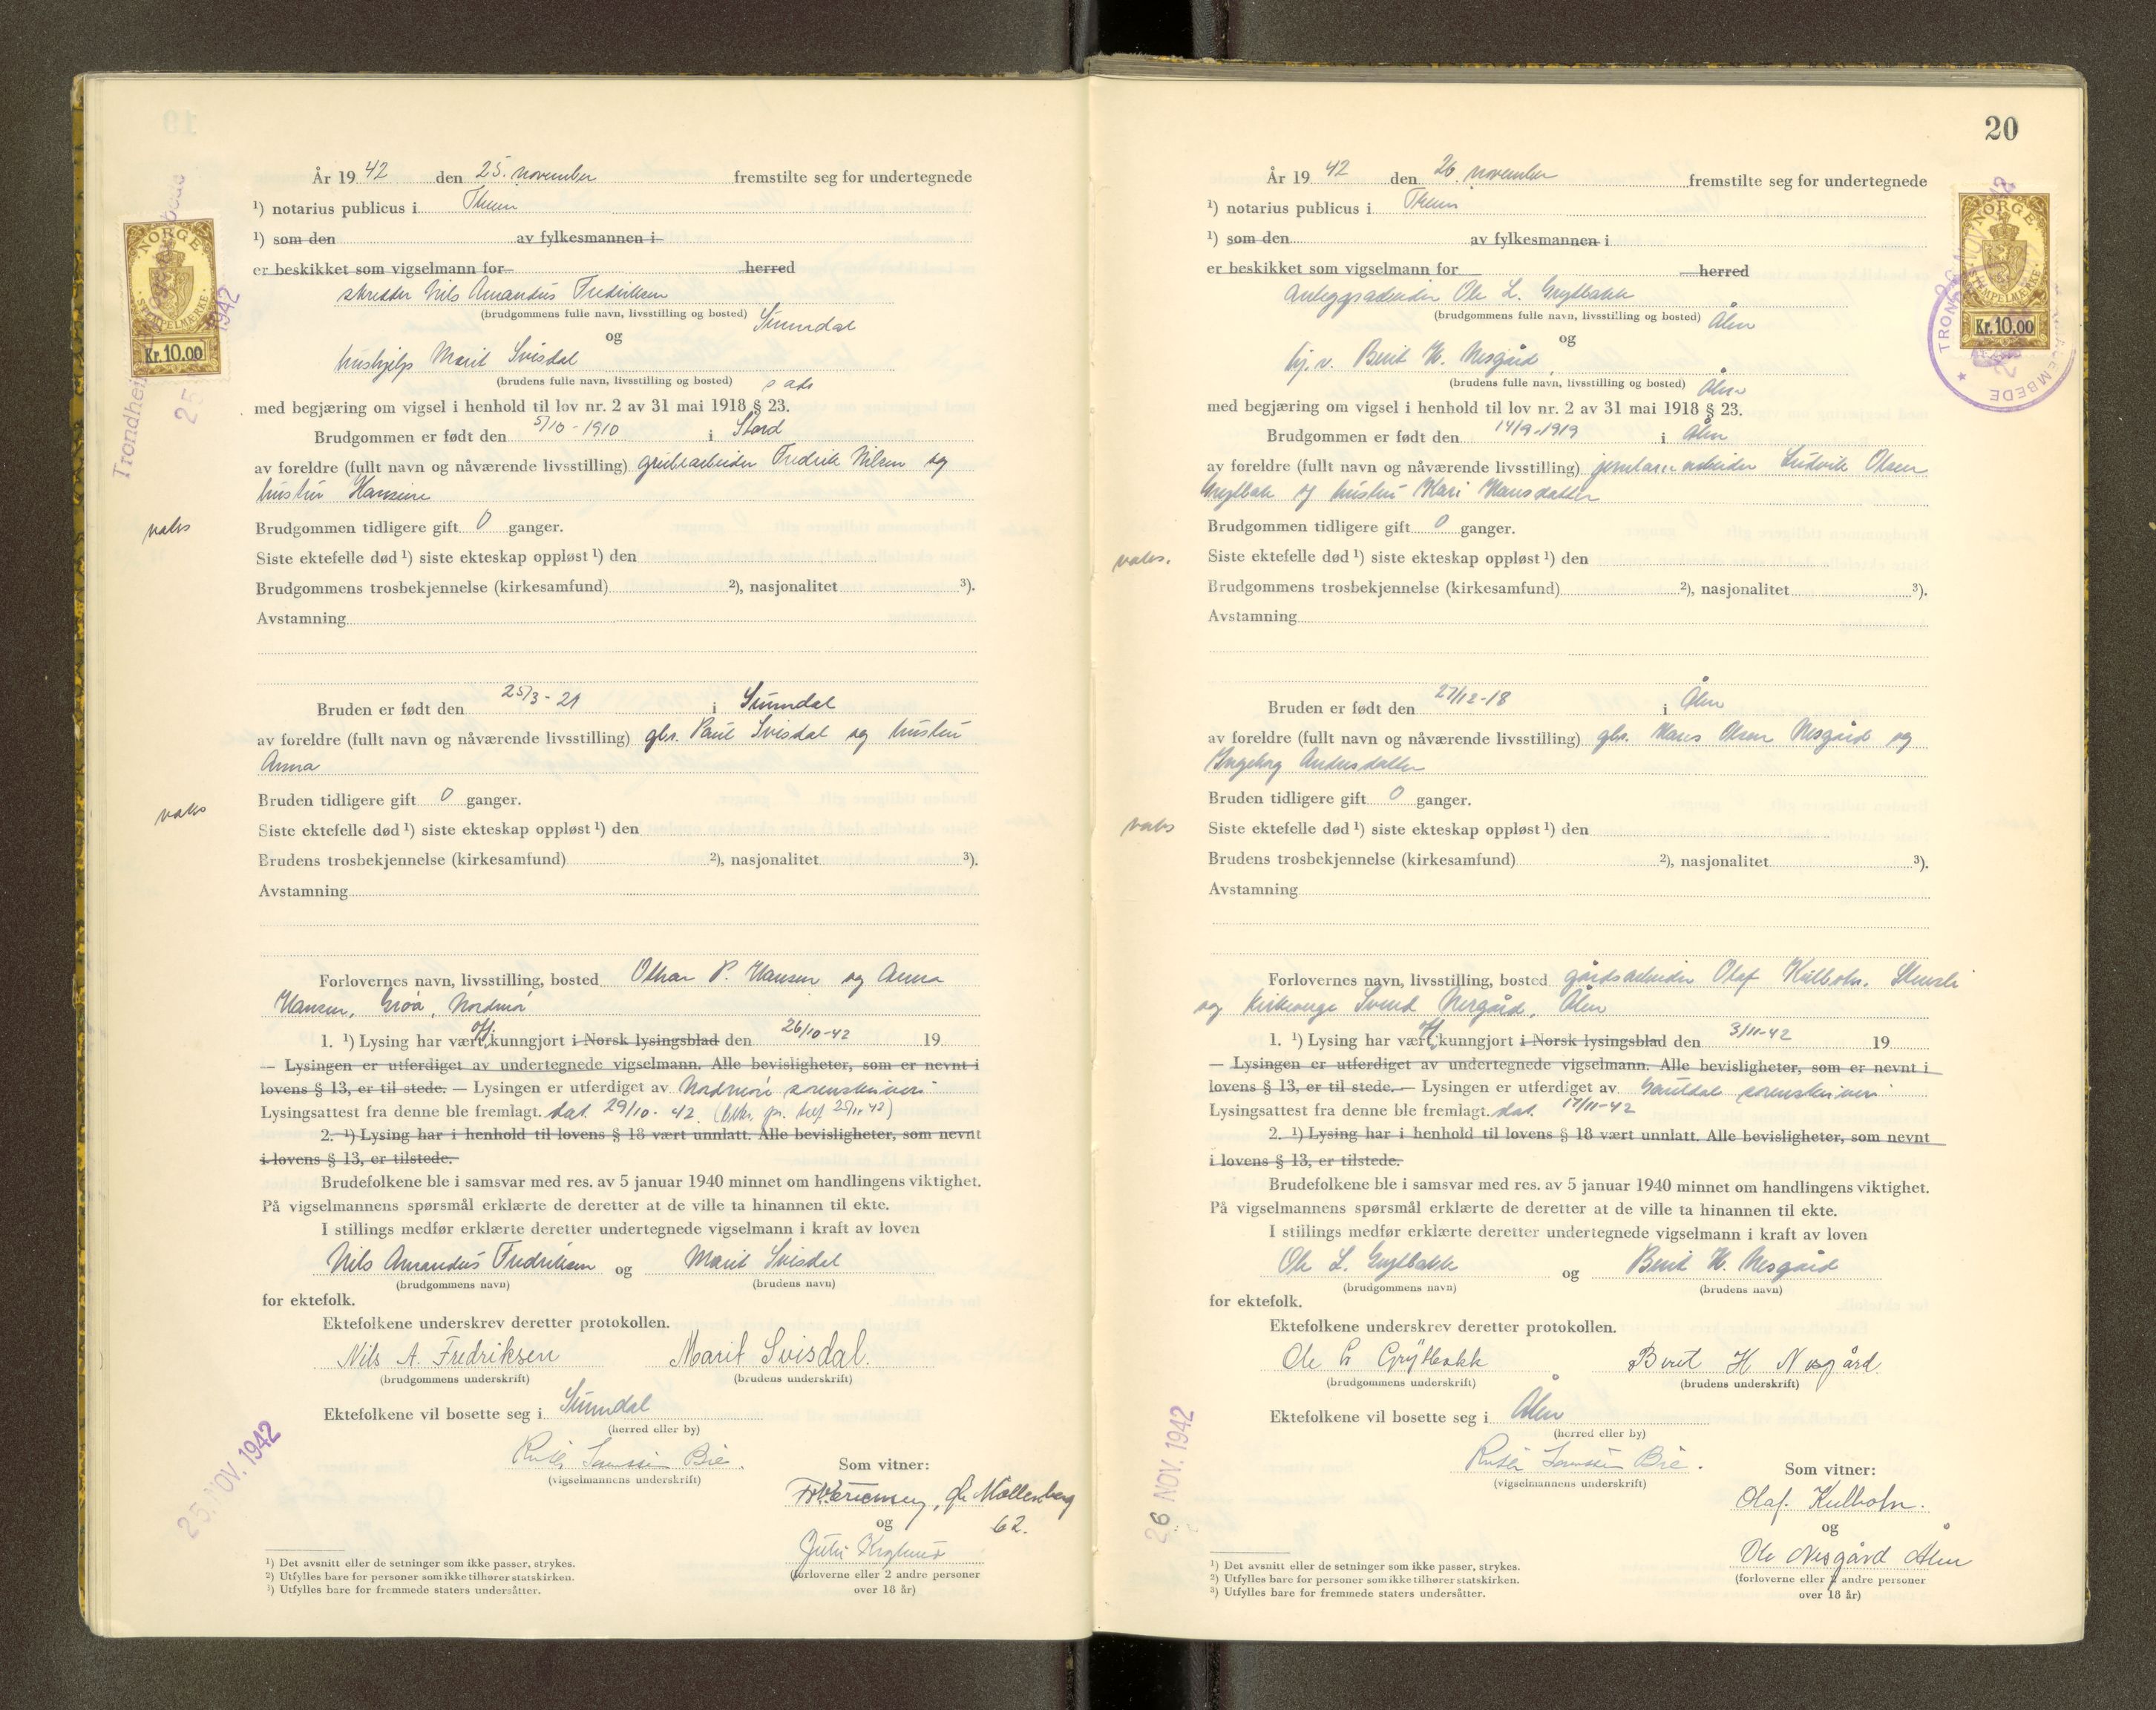 År 1942 den 25. november fremstilte seg for undertegnede
¹) notarius publicus i Thum
¹) som den av fylkesmannen i
er beskikket som vigselmann for herred
skredder Nils Amandus Fredriksen
(brudgommens fulle navn, livsstilling og bosted) Sunndal
og
hushjelp Marit Svisdal
(brudens fulle navn, livsstilling og bosted) sads
med begjæring om vigsel i henhold til lov nr. 2 av 31 mai 1918 § 23.
Brudgommen er født den 5/10-1910 i Stord
av foreldre (fullt navn og nåværende livsstilling) grubearbeider Fredrik Nilsen og
hustru Hansine
vaks
Brudgommen tidligere gift 0 ganger.
Siste ektefelle død ¹) siste ekteskap oppløst ¹) den
Brudgommens trosbekjennelse (kirkesamfund) ²), nasjonalitet ³).
Avstamning
Bruden er født den 25/3-21 i Sunndal
av foreldre (fullt navn og nåværende livsstilling) gbr. Paul Svisdal og hustru
Anna
Bruden tidligere gift 0 ganger.
vaks
Siste ektefelle død ¹) siste ekteskap oppløst ¹) den
Brudens trosbekjennelse (kirkesamfund) ²), nasjonalitet ³).
Avstamning
Forlovernes navn, livsstilling, bosted Othar P. Hansen og Anna
Hansen, Grøa, Nordmør
1. ¹) Lysing har vært off. kunngjort i Norsk lysingsblad den 26/10-42 19
— Lysingen er utferdiget av undertegnede vigselmann. Alle bevisligheter, som er nevnt i
lovens § 13, er til stede. — Lysingen er utferdiget av Nordmøre sorenskriveri
Lysingsattest fra denne ble fremlagt. dat. 29/10-42
2. ¹) Lysing har i henhold til lovens § 18 vært unnlatt. Alle bevisligheter, som nevnt
i lovens § 13, er tilstede.
Brudefolkene ble i samsvar med res. av 5 januar 1940 minnet om handlingens viktighet.
På vigselmannens spørsmål erklærte de deretter at de ville ta hinannen til ekte.
I stillings medfør erklærte deretter undertegnede vigselmann i kraft av loven
Nils Amandus Fredriksen og Marit Svisdal
(brudgommens navn) (brudens navn)
for ektefolk.
Ektefolkene underskrev deretter protokollen.
Nils A. Fredriksen Marit Svisdal.
(brudgommens underskrift) (brudens underskrift)
Ektefolkene vil bosette seg i Sunndal
(herred eller by)
Bie.
(vigselmannens underskrift)
Som vitner:
Møllenberg
og 62.
(forloverne eller 2 andre personer
over 18 år)
¹) Det avsnitt eller de setninger som ikke passer, strykes.
²) Utfylles bare for personer som ikke tilhører statskirken.
³) Utfylles bare for fremmede staters undersåtter.
NORGE
STEMPELMÆRKE
Kr. 10.00
25. NOV. 1942
20
År 1942 den 26. november fremstilte seg for undertegnede
¹) notarius publicus i Thum
¹) som den av fylkesmannen i
er beskikket som vigselmann for herred
anleggsarbeider Ole L. Grytbakk
(brudgommens fulle navn, livsstilling og bosted) Ålen
og
hj. v. Berit H. Nesgård
(brudens fulle navn, livsstilling og bosted) Ålen
med begjæring om vigsel i henhold til lov nr. 2 av 31 mai 1918 § 23.
Brudgommen er født den 14/9-1919 i Ålen
av foreldre (fullt navn og nåværende livsstilling) jernbanearbeider Ludvik Olsen
Grytbak og hustru Kari Hansdatter
Brudgommen tidligere gift 0 ganger.
vaks.
Siste ektefelle død ¹) siste ekteskap oppløst ¹) den
Brudgommens trosbekjennelse (kirkesamfund) ²), nasjonalitet ³).
Avstamning
Bruden er født den 27/12-18 i Ålen
av foreldre (fullt navn og nåværende livsstilling) gbr. Hans Olsen Nesgård og
Ingeborg Andersdatter
Bruden tidligere gift 0 ganger.
vaks
Siste ektefelle død ¹) siste ekteskap oppløst ¹) den
Brudens trosbekjennelse (kirkesamfund) ²), nasjonalitet ³).
Avstamning
Forlovernes navn, livsstilling, bosted gårdsarbeider Olaf Kulbotn,
og kirkeverge Svend Nergård, Ålen
1. ¹) Lysing har vært off. kunngjort i Norsk lysingsblad den 3/11-42 19
— Lysingen er utferdiget av undertegnede vigselmann. Alle bevisligheter, som er nevnt i
lovens § 13, er til stede. — Lysingen er utferdiget av Gauldal sorenskriveri
Lysingsattest fra denne ble fremlagt. dat. 17/11-42
2. ¹) Lysing har i henhold til lovens § 18 vært unnlatt. Alle bevisligheter, som nevnt
i lovens § 13, er tilstede.
Brudefolkene ble i samsvar med res. av 5 januar 1940 minnet om handlingens viktighet.
På vigselmannens spørsmål erklærte de deretter at de ville ta hinannen til ekte.
I stillings medfør erklærte deretter undertegnede vigselmann i kraft av loven
Ole L. Grytbakk og Berit H. Nesgård
(brudgommens navn) (brudens navn)
for ektefolk.
Ektefolkene underskrev deretter protokollen.
Ole L Grytbakk Berit H Nesgård.
(brudgommens underskrift) (brudens underskrift)
Ektefolkene vil bosette seg i Ålen
(herred eller by)
Bie.
(vigselmannens underskrift)
Som vitner:
Olaf Kulbotn.
og
Ole Nesgård Ålen
(forloverne eller 2 andre personer
over 18 år)
¹) Det avsnitt eller de setninger som ikke passer, strykes.
²) Utfylles bare for personer som ikke tilhører statskirken.
³) Utfylles bare for fremmede staters undersåtter.
NORGE
STEMPELMÆRKE
Kr. 10.00
26 NOV. 1942